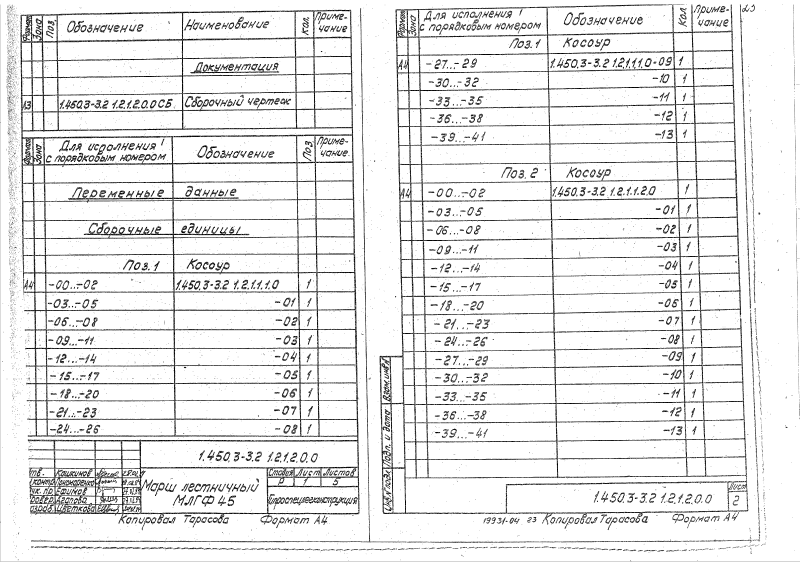 Формат Зона Поз. Обозначение Наименование Кол. Приме-чание
Документация
А3 1.450.3-3.2 1.2.1.2.0.0СБ Сборочный чертеж
Формат Зона Для исполнения 1 с порядковым номером Обозначение Поз. Приме-чание
Переменные данные
Сборочные единицы
Поз.1 Косоур
А4 -00...-02 1.450.3-3.2 1.2.1.1.1.0 1
-03...-05 -01 1
-06...-08 -02 1
-09...-11 -03 1
-12...-14 -04 1
-15...-17 -05 1
-18...-20 -06 1
-21...-23 -07 1
-24...-26 -08 1
1.450.3-3.2 1.2.1.2.0.0
Утв. Кошкинов
Н.контр. Пономаренко
Рук. пр. Ефимов
Провер. Агапова
Разраб. Цветкова
Марш лестничный
МЛГФ 45
Стадия Лист Листов
Р 1 5
Гипроспецлегконструкция
Копировал Тарасова Формат А4
Формат Зона Для исполнения 1 с порядковым номером Обозначение Кол. Приме-чание
23
Поз.1 Косоур
А4 -27...-29 1.450.3-3.2 1.2.1.1.1.0-09 1
-30...-32 -10 1
-33...-35 -11 1
-36...-38 -12 1
-39...-41 -13 1
Поз. 2 Косоур
А4 -00...-02 1.450.3-3.2 1.2.1.1.2.0 1
-03...-05 -01 1
-06...-08 -02 1
-09...-11 -03 1
-12...-14 -04 1
-15...-17 -05 1
-18...-20 -06 1
-21...-23 -07 1
-24...-26 -08 1
-27...-29 -09 1
-30...-32 -10 1
-33...-35 -11 1
-36...-38 -12 1
-39...-41 -13 1
Инв.№подл. Подп. и дата Взам.инв.№
1.450.3-3.2 1.2.1.2.0.0
Лист
2
19931-04 23 Копировал Тарасова Формат А4